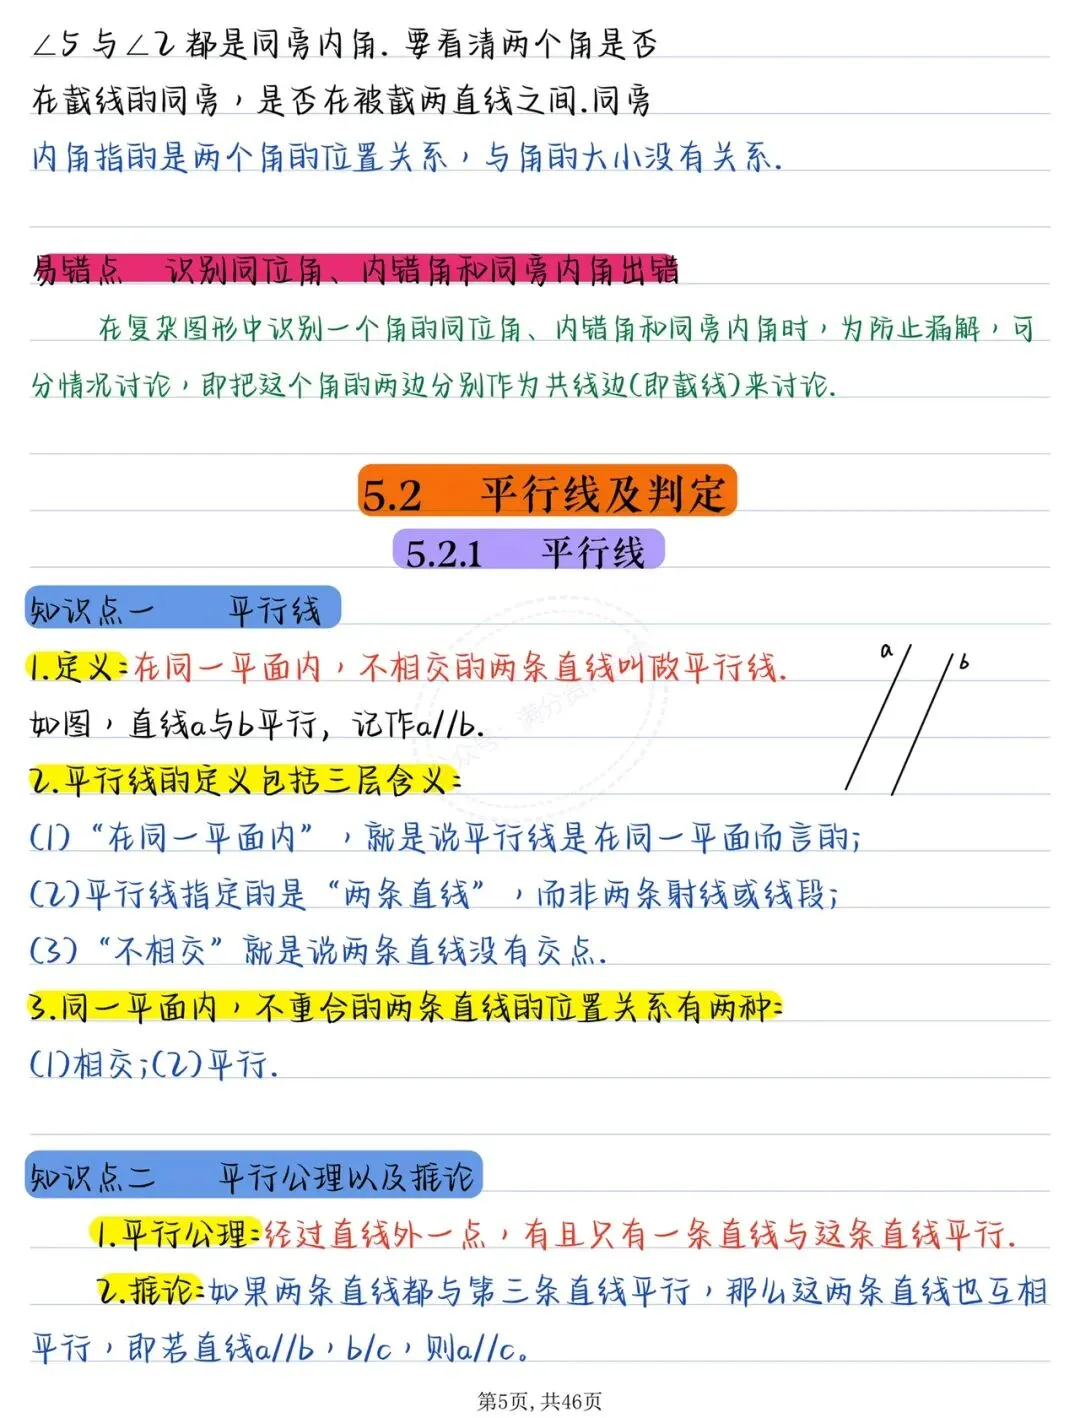 ∠5与∠2都是同旁内角.要看清两个角是否
在截线的同旁，是否在被截两直线之间.同旁
内角指的是两个角的位置关系，与角的大小没有关系.
易错点 识别同位角、内错角和同旁内角出错
在复杂图形中识别一个角的同位角、内错角和同旁内角时，为防止漏解，可
分情况讨论，即把这个角的两边分别作为共线边(即截线)来讨论.
5.2 平行线及判定
5.2.1 平行线
知识点一 平行线
1.定义:在同一平面内，不相交的两条直线叫做平行线.
a
b
如图，直线a与b平行, 记作a//b.
2.平行线的定义包括三层含义:
(1)“在同一平面内”，就是说平行线是在同一平面而言的;
(2)平行线指定的是“两条直线”，而非两条射线或线段;
(3)“不相交”就是说两条直线没有交点.
3.同一平面内，不重合的两条直线的位置关系有两种:
(1)相交;(2)平行.
知识点二 平行公理以及推论
1.平行公理:经过直线外一点，有且只有一条直线与这条直线平行.
2.推论:如果两条直线都与第三条直线平行，那么这两条直线也互相
平行，即若直线a//b，b/c，则a//c。
第5页,共46页